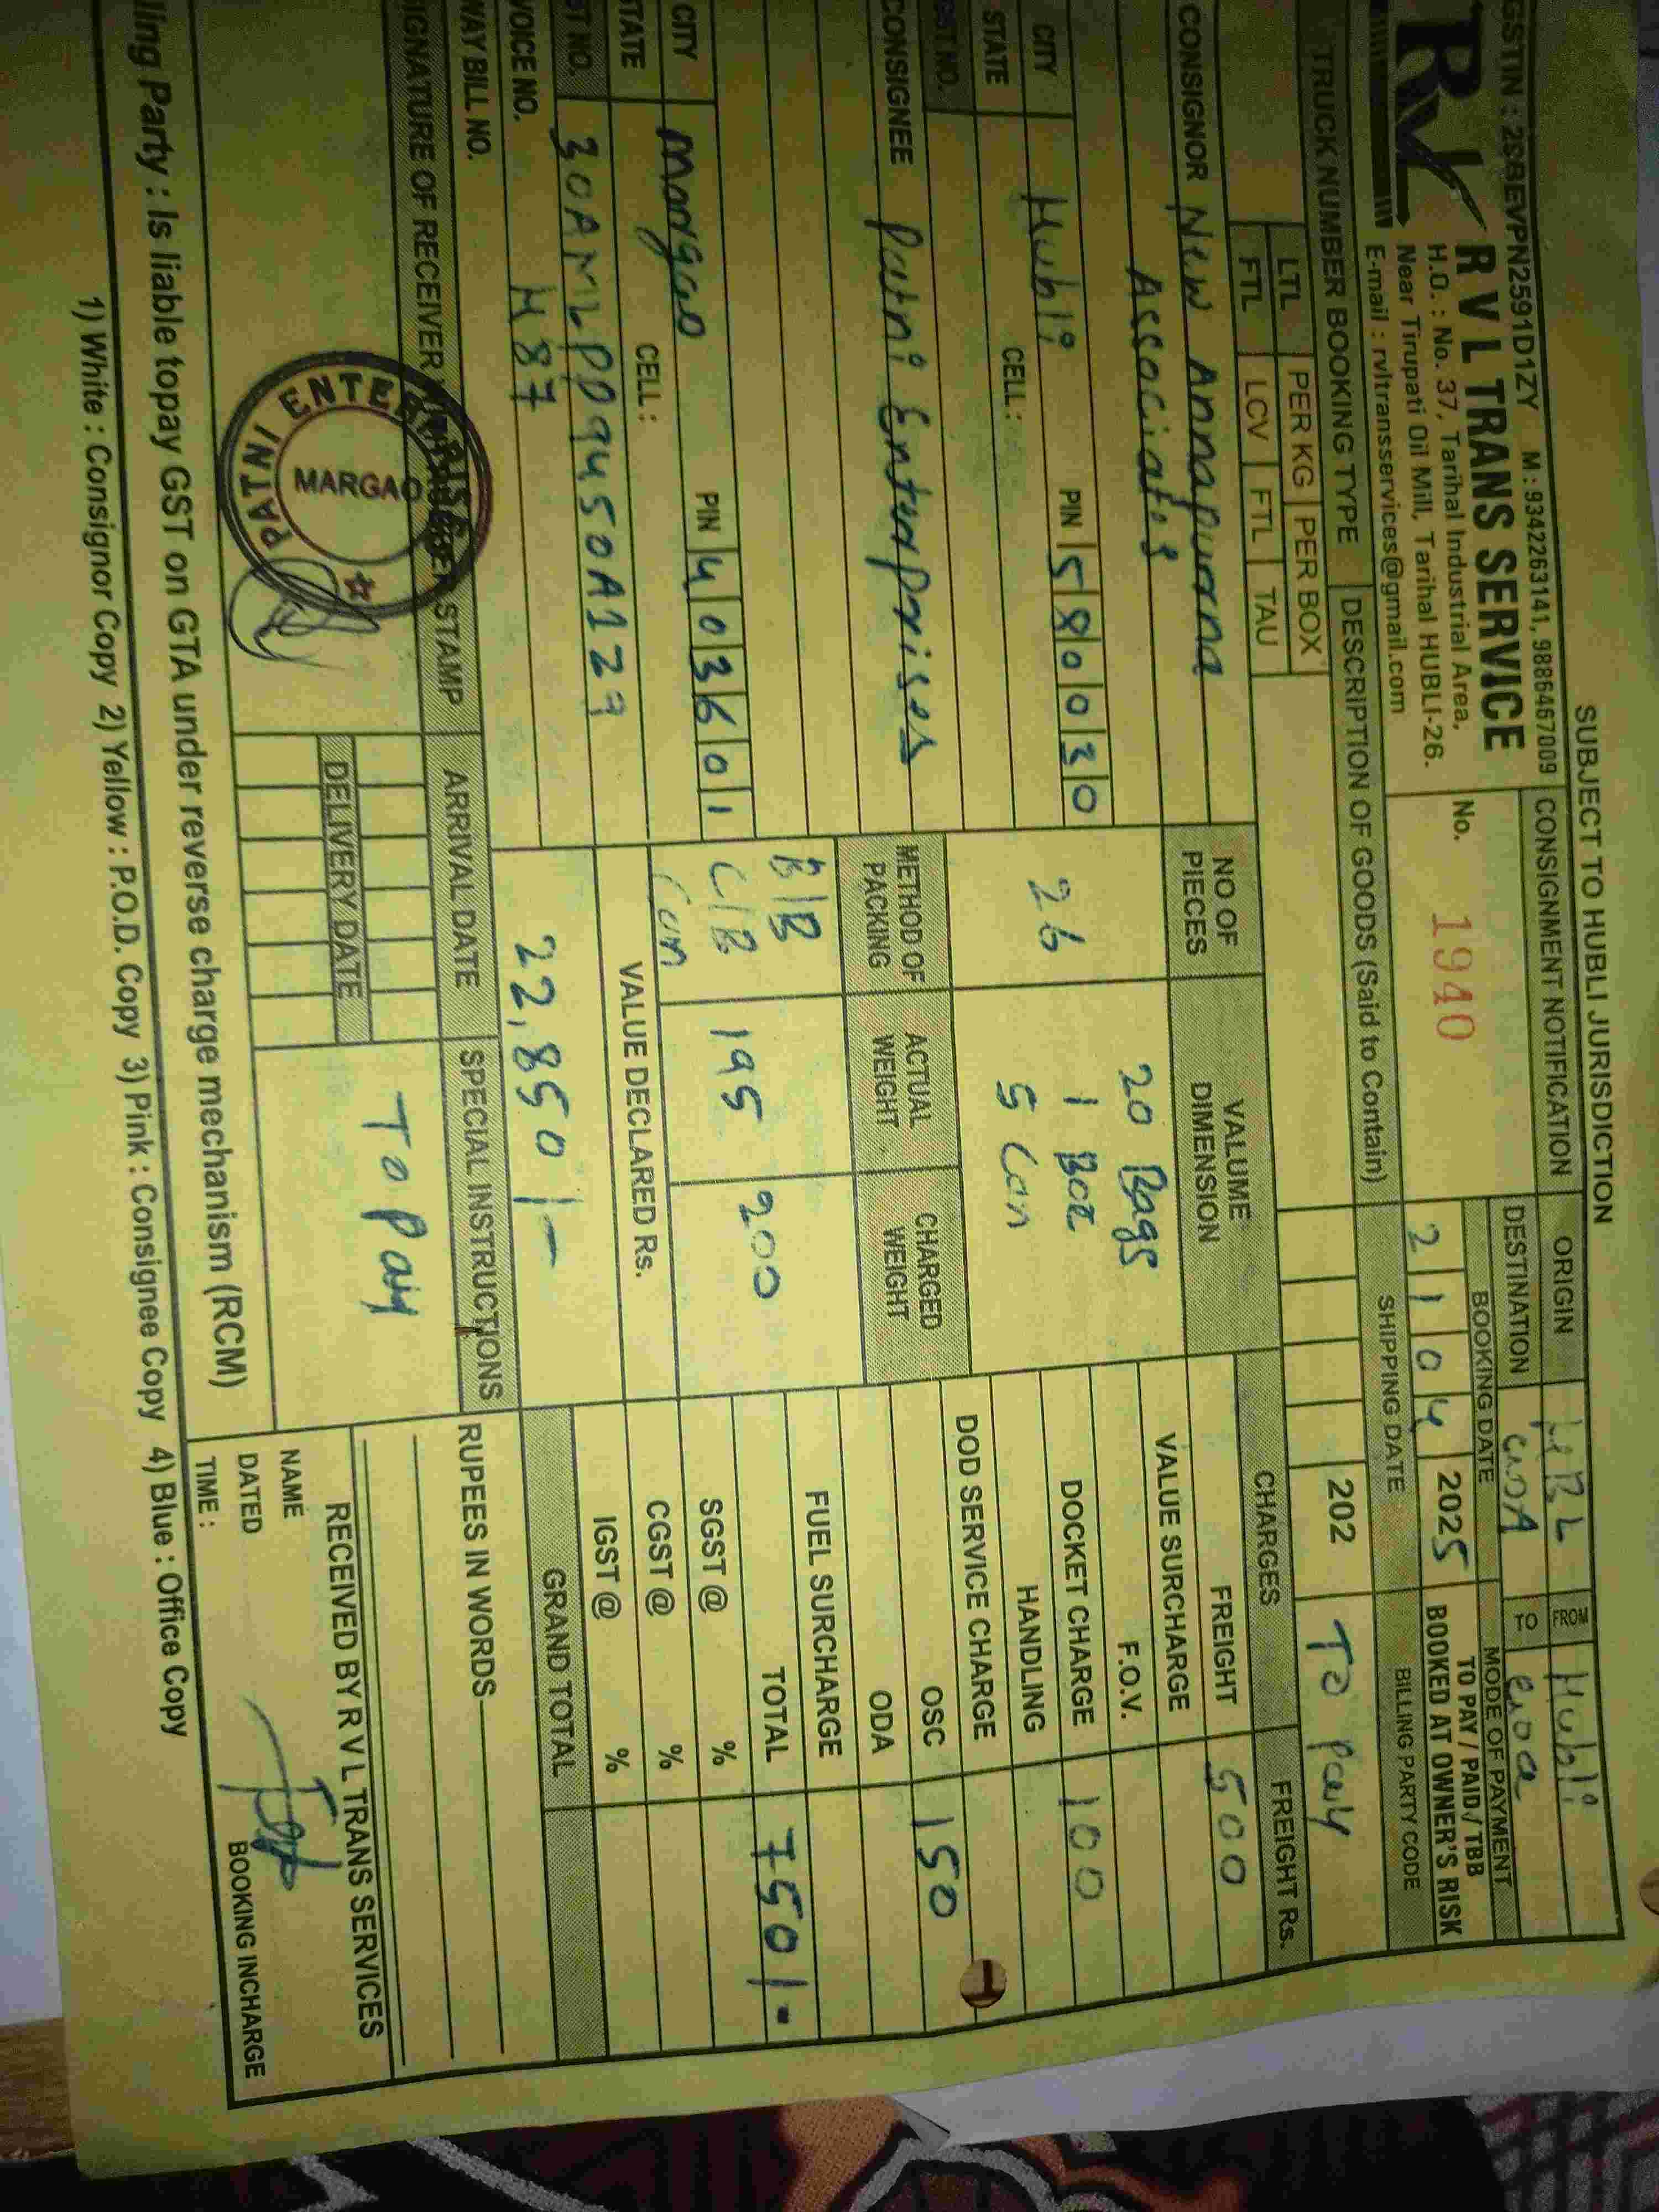 SUBJECT TO HUBLI JURISDICTION
GSTIN : 29BEVPN2591D1ZY M : 9342263141, 9886467009
RVL TRANS SERVICE
H.O. : No. 37, Tarihal Industrial Area,
Near Tirupati Oil Mill, Tarihal HUBLI-26.
E-mail : rvltransservices@gmail.com
CONSIGNMENT NOTIFICATION
No. 1940
ORIGIN HBL FROM Hubli
DESTINATION GOA TO Goa
BOOKING DATE
21 04 2025
MODE OF PAYMENT
TO PAY / PAID / TBB
BOOKED AT OWNER'S RISK
SHIPPING DATE
202
BILLING PARTY CODE
To pay
TRUCK NUMBER BOOKING TYPE
LTL PER KG PER BOX
FTL LCV FTL TAU
DESCRIPTION OF GOODS (Said to Contain)
CONSIGNOR New Annapurna
Associates
CITY Hubli PIN 580030
STATE CELL :
ST NO.
CONSIGNEE Patni Enterprises
CITY Margao PIN 403601
TATE CELL :
ST NO. 30AMLPP9450A1Z7
VOICE NO. H87
WAY BILL NO.
NO OF PIECES
26
VALUME DIMENSION
20 Bags
1 Box
5 Can
METHOD OF PACKING
B/B
C/B
Can
ACTUAL WEIGHT
195
CHARGED WEIGHT
200
VALUE DECLARED Rs.
22,850/-
CHARGES FREIGHT Rs.
FREIGHT 500
VALUE SURCHARGE
F.O.V.
DOCKET CHARGE 100
HANDLING
DOD SERVICE CHARGE
OSC 150
ODA
FUEL SURCHARGE
TOTAL 750/-
SGST @ %
CGST @ %
IGST @ %
GRAND TOTAL
RUPEES IN WORDS
IGNATURE OF RECEIVER STAMP
PATNI ENTERPRISES
MARGAO
ARRIVAL DATE
DELIVERY DATE
SPECIAL INSTRUCTIONS
To Pay
RECEIVED BY R V L TRANS SERVICES
NAME
DATED
TIME :
BOOKING INCHARGE
ling Party : Is liable topay GST on GTA under reverse charge mechanism (RCM)
1) White : Consignor Copy 2) Yellow : P.O.D. Copy 3) Pink : Consignee Copy 4) Blue : Office Copy